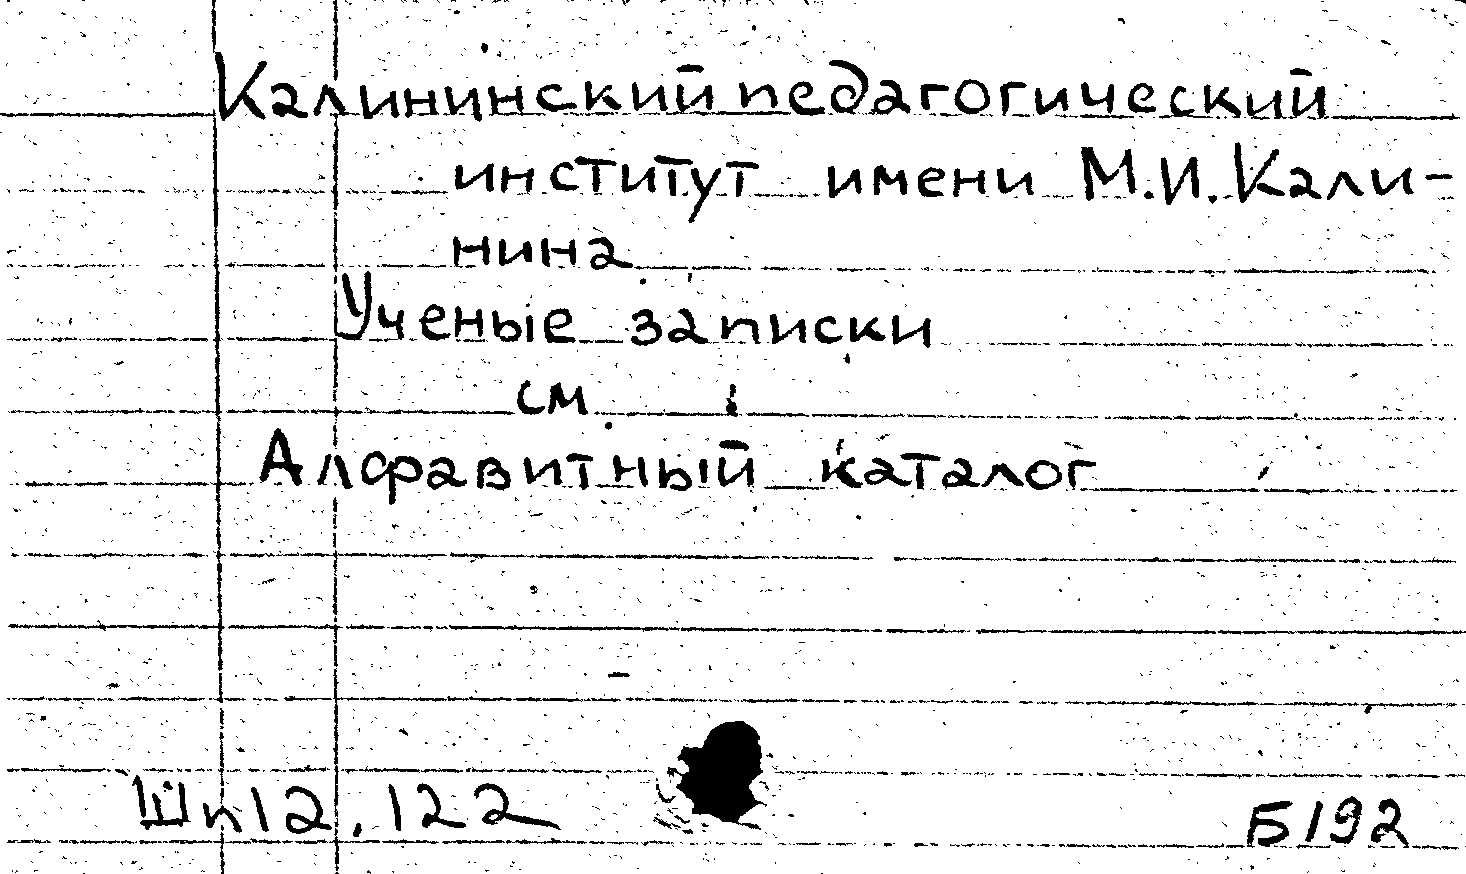 Калининский педагогический
институт имени М.И.Кали-
нина
Ученые записки
см
Алфавитный каталог
Шп12.122
Б192